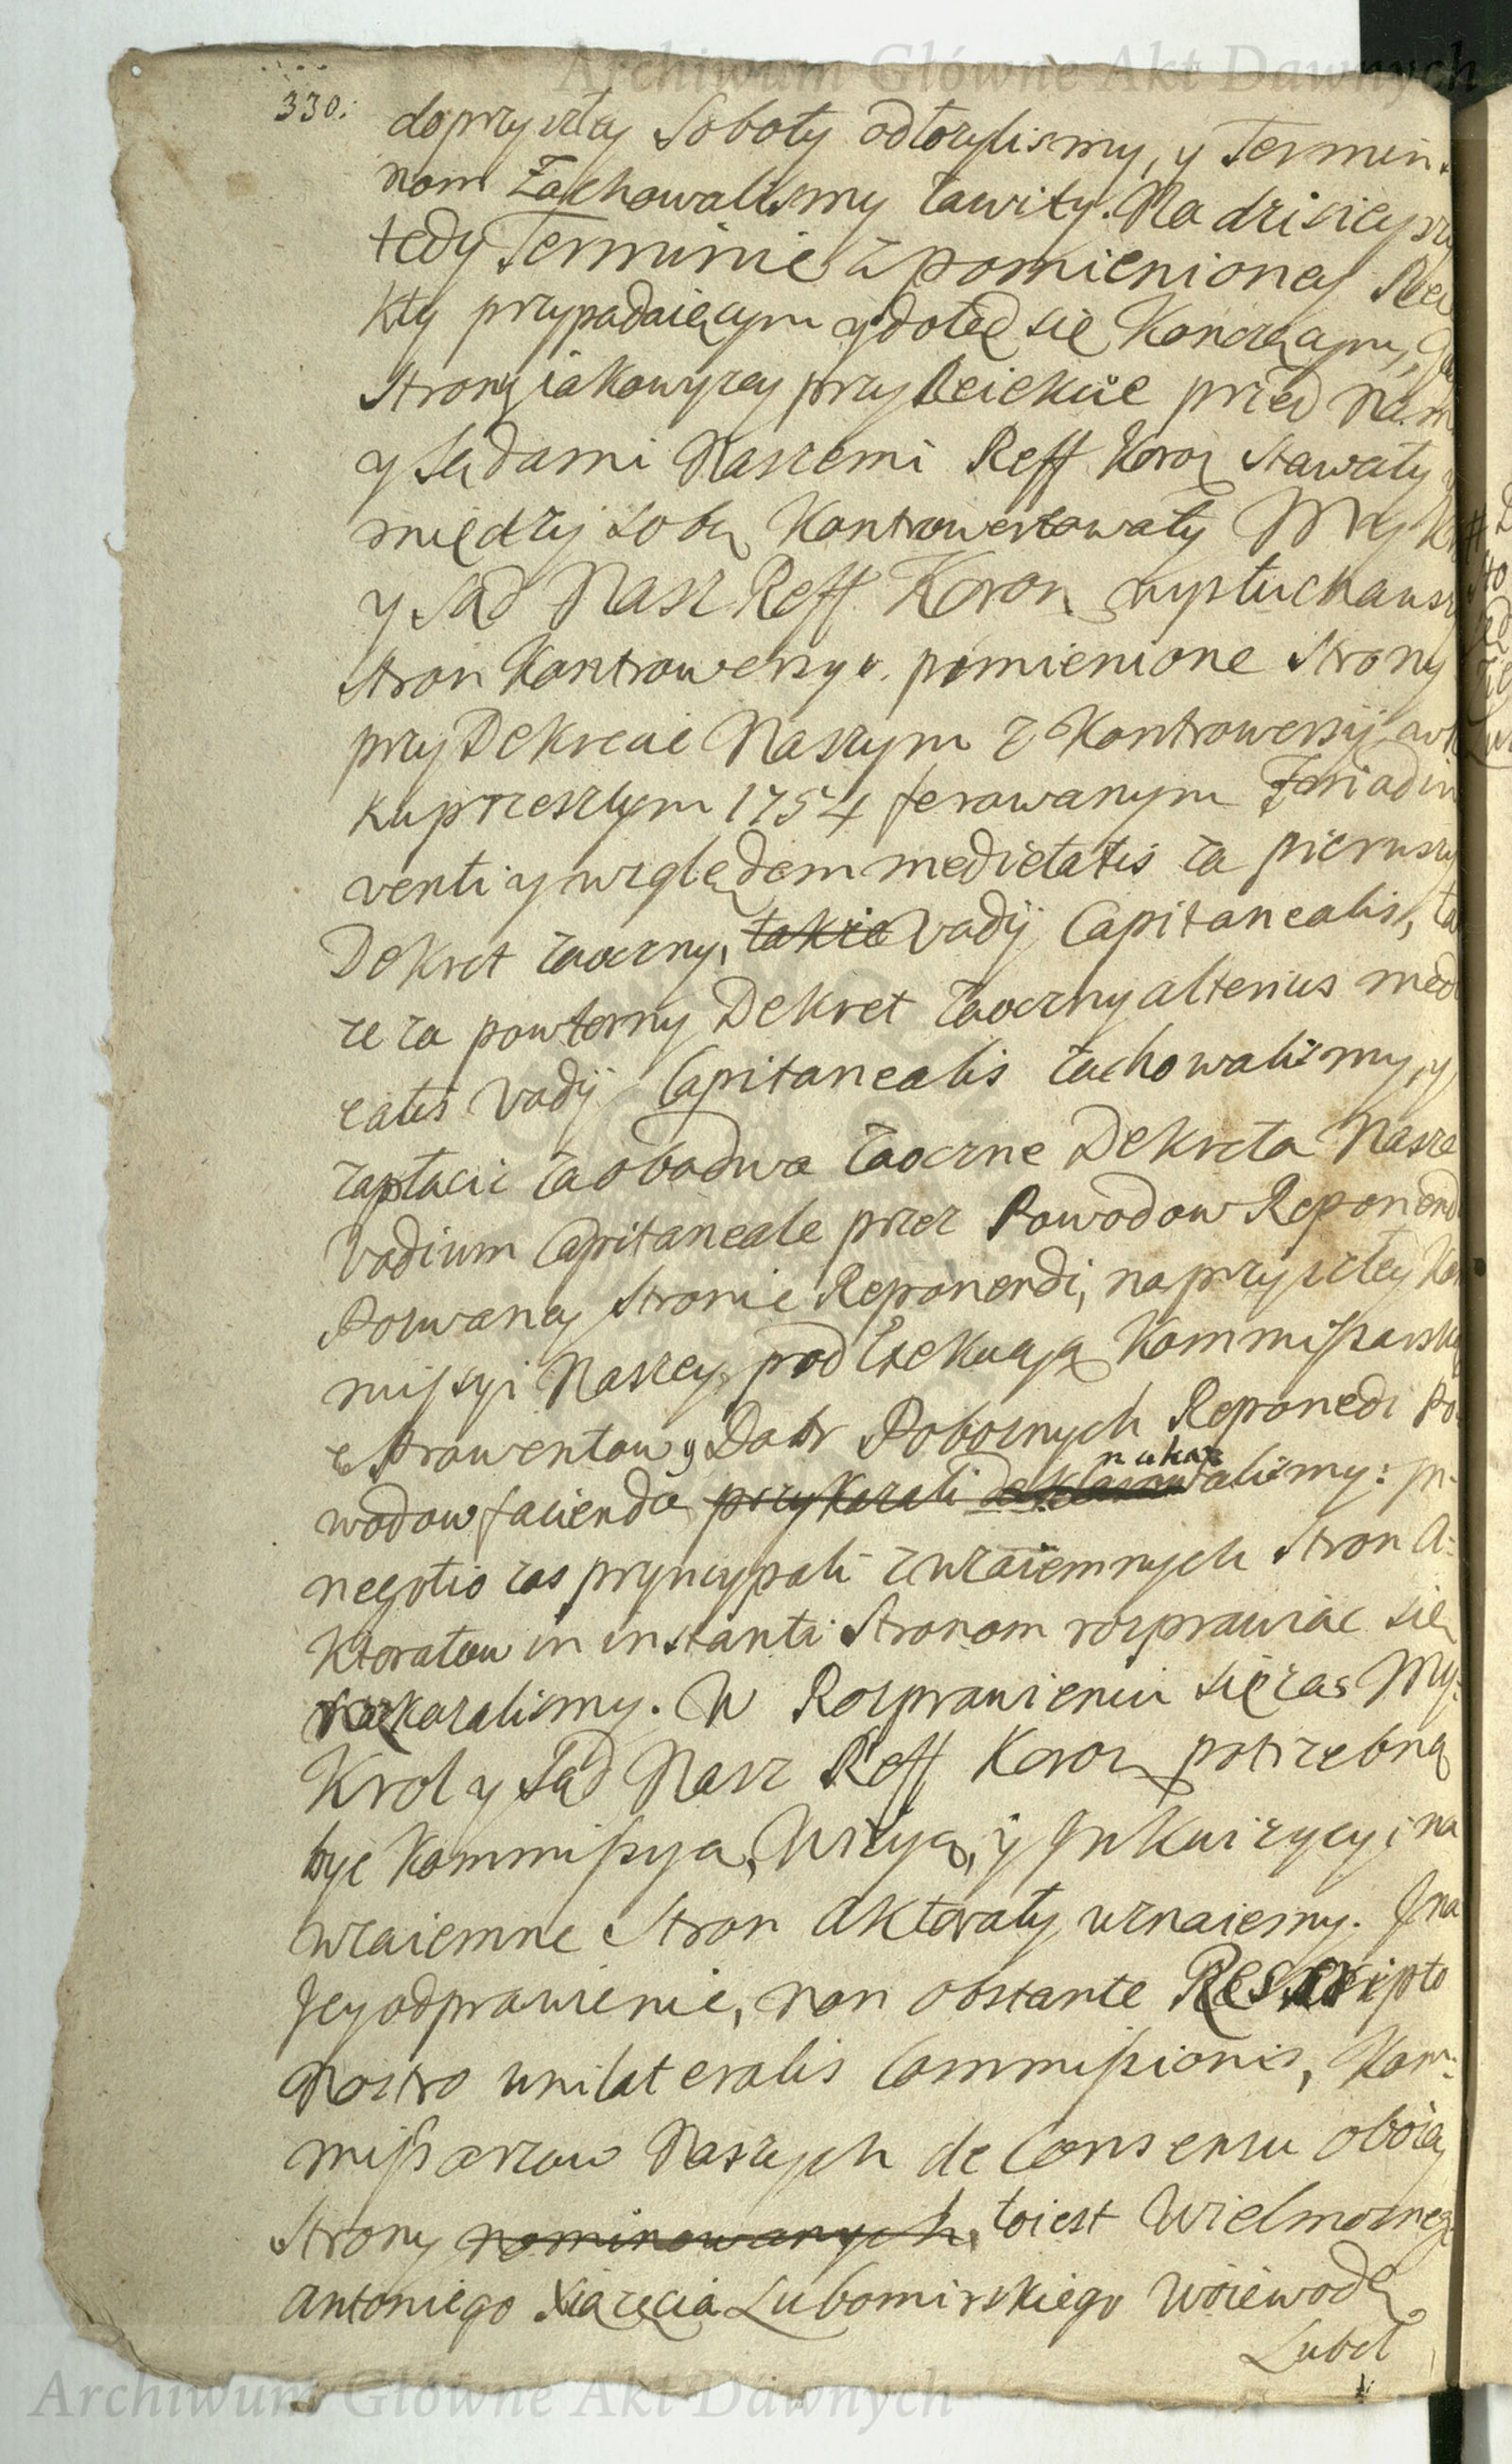 Archiwum Główne Akt Dawnych
330.
do przyszłey Soboty odłozylismy, y Termin
nom Zachowalismy zawity. Na dzisieyszy
tedy Terminie z pomienioney
kty przypadaiącym y dotąd się konczącym,
Strony iako wyzey przy Reiekcie przed Nami
y Sądami Naszemi Reff Koron stawały
między sobą kontrowertowały My
y Sąd Nasz Reff. Koron wysłuchawszy
stron Kontrowersyi. pomienione Strony
przy Dekrecie Naszym z Kontrowersyi w
ku przeszłym 1754 ferowanym
venti y względem medietatis za pierwszy
Dekret zaoczny, takze Vadij Capitanealis,
ze za powtorny Dekret zaoczny alterius med
eatis Vadij Capitanealis zachowalismy, y
zapłacic za obadwa zaoczne Dekreta Nasze
Vadium Capitaneale przez Powodow Reponend
Pozwaney stronie Reponendi, na przyszłey Kom
missyi Naszey, pod Exekucyą Kommissarską
z Prowentow y Dobr Pobocznych Reponedi Po
wodow facienda przykazali nakazalismy: in
negotio zas pryncypali z wzaiemnych Stron A:
ktoratow in instanti Stronom rozprawiac się
nakazalismy. W Rozprawieniu się zas My:
Krol y Sąd Nasz Reff Koron potrzebną
byc Kommissya, Wizyą, y Inkwizycyi na
wzaiemne Stron Aktoraty uznaiemy. I na
Jey odprawienie, non obstante Rescripto
Nostro unilateralis Commissionis, Kom:
missarzow Naszych de Consensu oboiey
Strony nominowanych, toiest Wielmoznego
Antoniego Xiązęcia Lubomirskiego Woiewodę
Lubel
Archiwum Główne Akt Dawnych